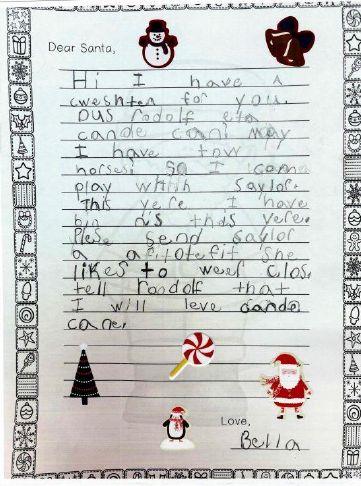 Dear Santa,
Hi I have a
cweshten for you.
Dus rodolf eta
cande cani may
I have tow
horses! So I canna
play whith Saylor.
This yere I have
bin ds this yere.
Plese send saylor
a a
likes to weer clos.
tell rodolf that
I will leve cande
cane.
Love,
Bella